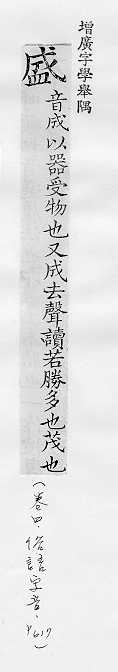 增廣字學舉隅
盛
音成以器受物也又成去聲讀若勝多也茂也
(卷四．俗語字音．P617)